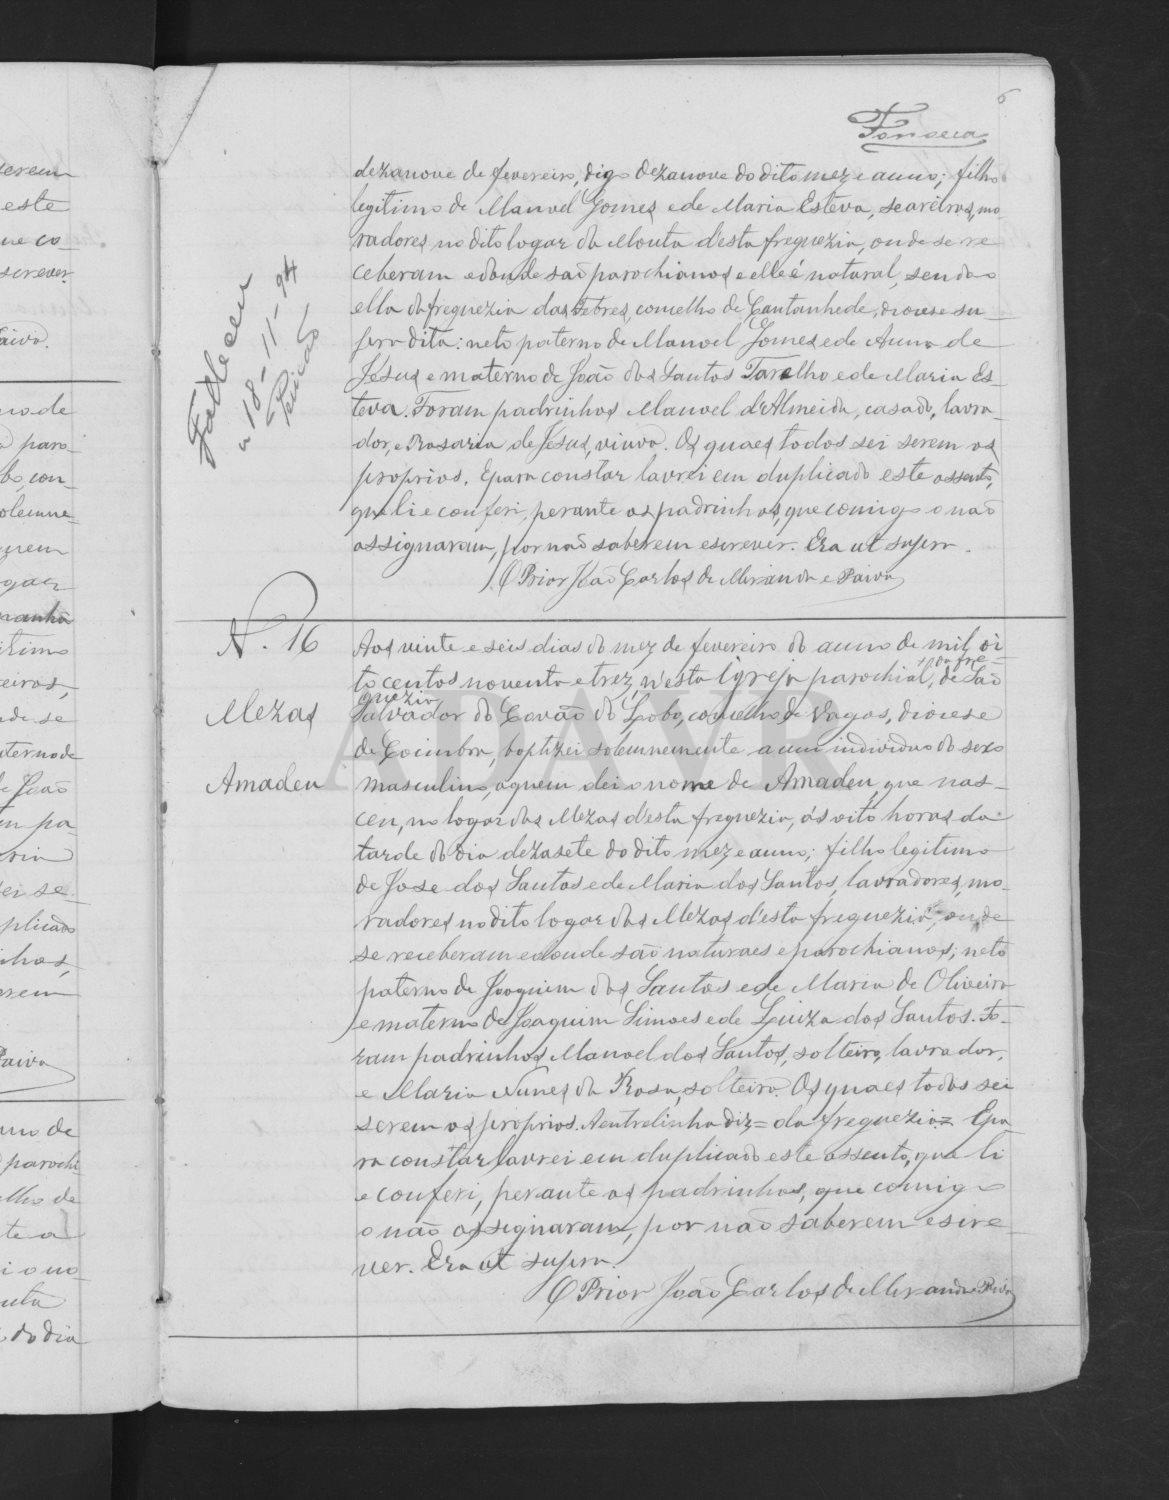 6
Fonseca
dezanove de fevereiro, digo dezanove do dito mez e anno; filho
legitimo de Manoel Gomes e de Maria Esteva, seareiros, mo-
radores no dito logar da Mouta d'esta freguezia, onde se re
ceberam e donde são parochianos e elle é natural, sendo
ella da freguezia das Febres, concelho de Cantanhede, diocese su-
pra dita: neto paterno de Manoel Gomes e de Anna de
Jesus e materno de João dos Santos Tarelho e de Maria Es-
teva. Foram padrinhos Manoel d'Almeida, casado, lavra-
dor, e Rosaria de Jesus, viuva. Os quaes todos sei serem os
proprios. E para constar lavrei em duplicado este assento,
que li e conferi, perante os padrinhos, que comigo o não
assignaram, por não saberem escrever. Era ut supra.
O Prior João Carlos de Miranda e Paiva
Falleceu
a 18-11-94
N. 16
Mezas
Amadeu
Aos vinte e seis dias do mez de fevereiro do anno de mil oi
to centos noventa e trez, n'esta Igreja parochial, + da fre= de São
guezia
Salvador do Covão do Lobo, concelho de Vagos, diocese
de Coimbra, baptizei solemnemente a um individuo do sexo
masculino, a quem dei o nome de Amadeu, que nas-
ceu, no logar das Mezas d'esta freguezia, ás oito horas da
tarde do dia dezasete do dito mez e anno; filho legitimo
de Jose dos Santos e de Maria dos Santos, lavradores, mo-
radores no dito logar das Mezas d'esta freguezia, onde
se receberam e donde são naturaes e parochianos; neto
paterno de Joaquim dos Santos e de Maria de Oliveira
e materno de Joaquim Simoes e de Luiza dos Santos. Fo-
ram padrinhos Manoel dos Santos, solteiro, lavrador,
e Maria Nunes da Rosa, solteira. Os quaes todos sei
serem os proprios. A entrelinha diz = da freguezia = E pa-
ra constar lavrei em duplicado este assento, que li
e conferi, perante os padrinhos, que comigo
o não assignaram, por não saberem escre-
ver. Era ut supra.
O Prior João Carlos de Miranda e Paiva
ADAVR